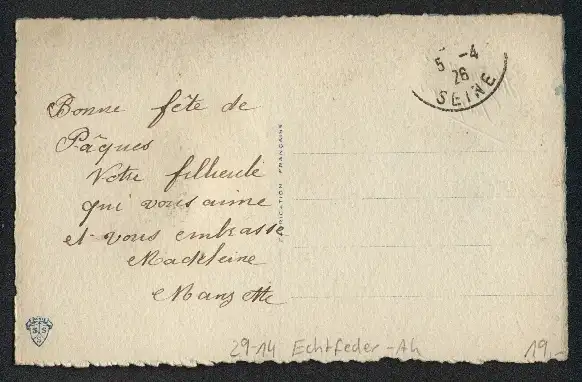 5 -4
26
SEINE
Bonne fête de
Pâques
Votre filleule
qui vous aime
et vous embrasse
Madeleine
FABRICATION FRANÇAISE
29-14 Echtfeder-Ak
19,-